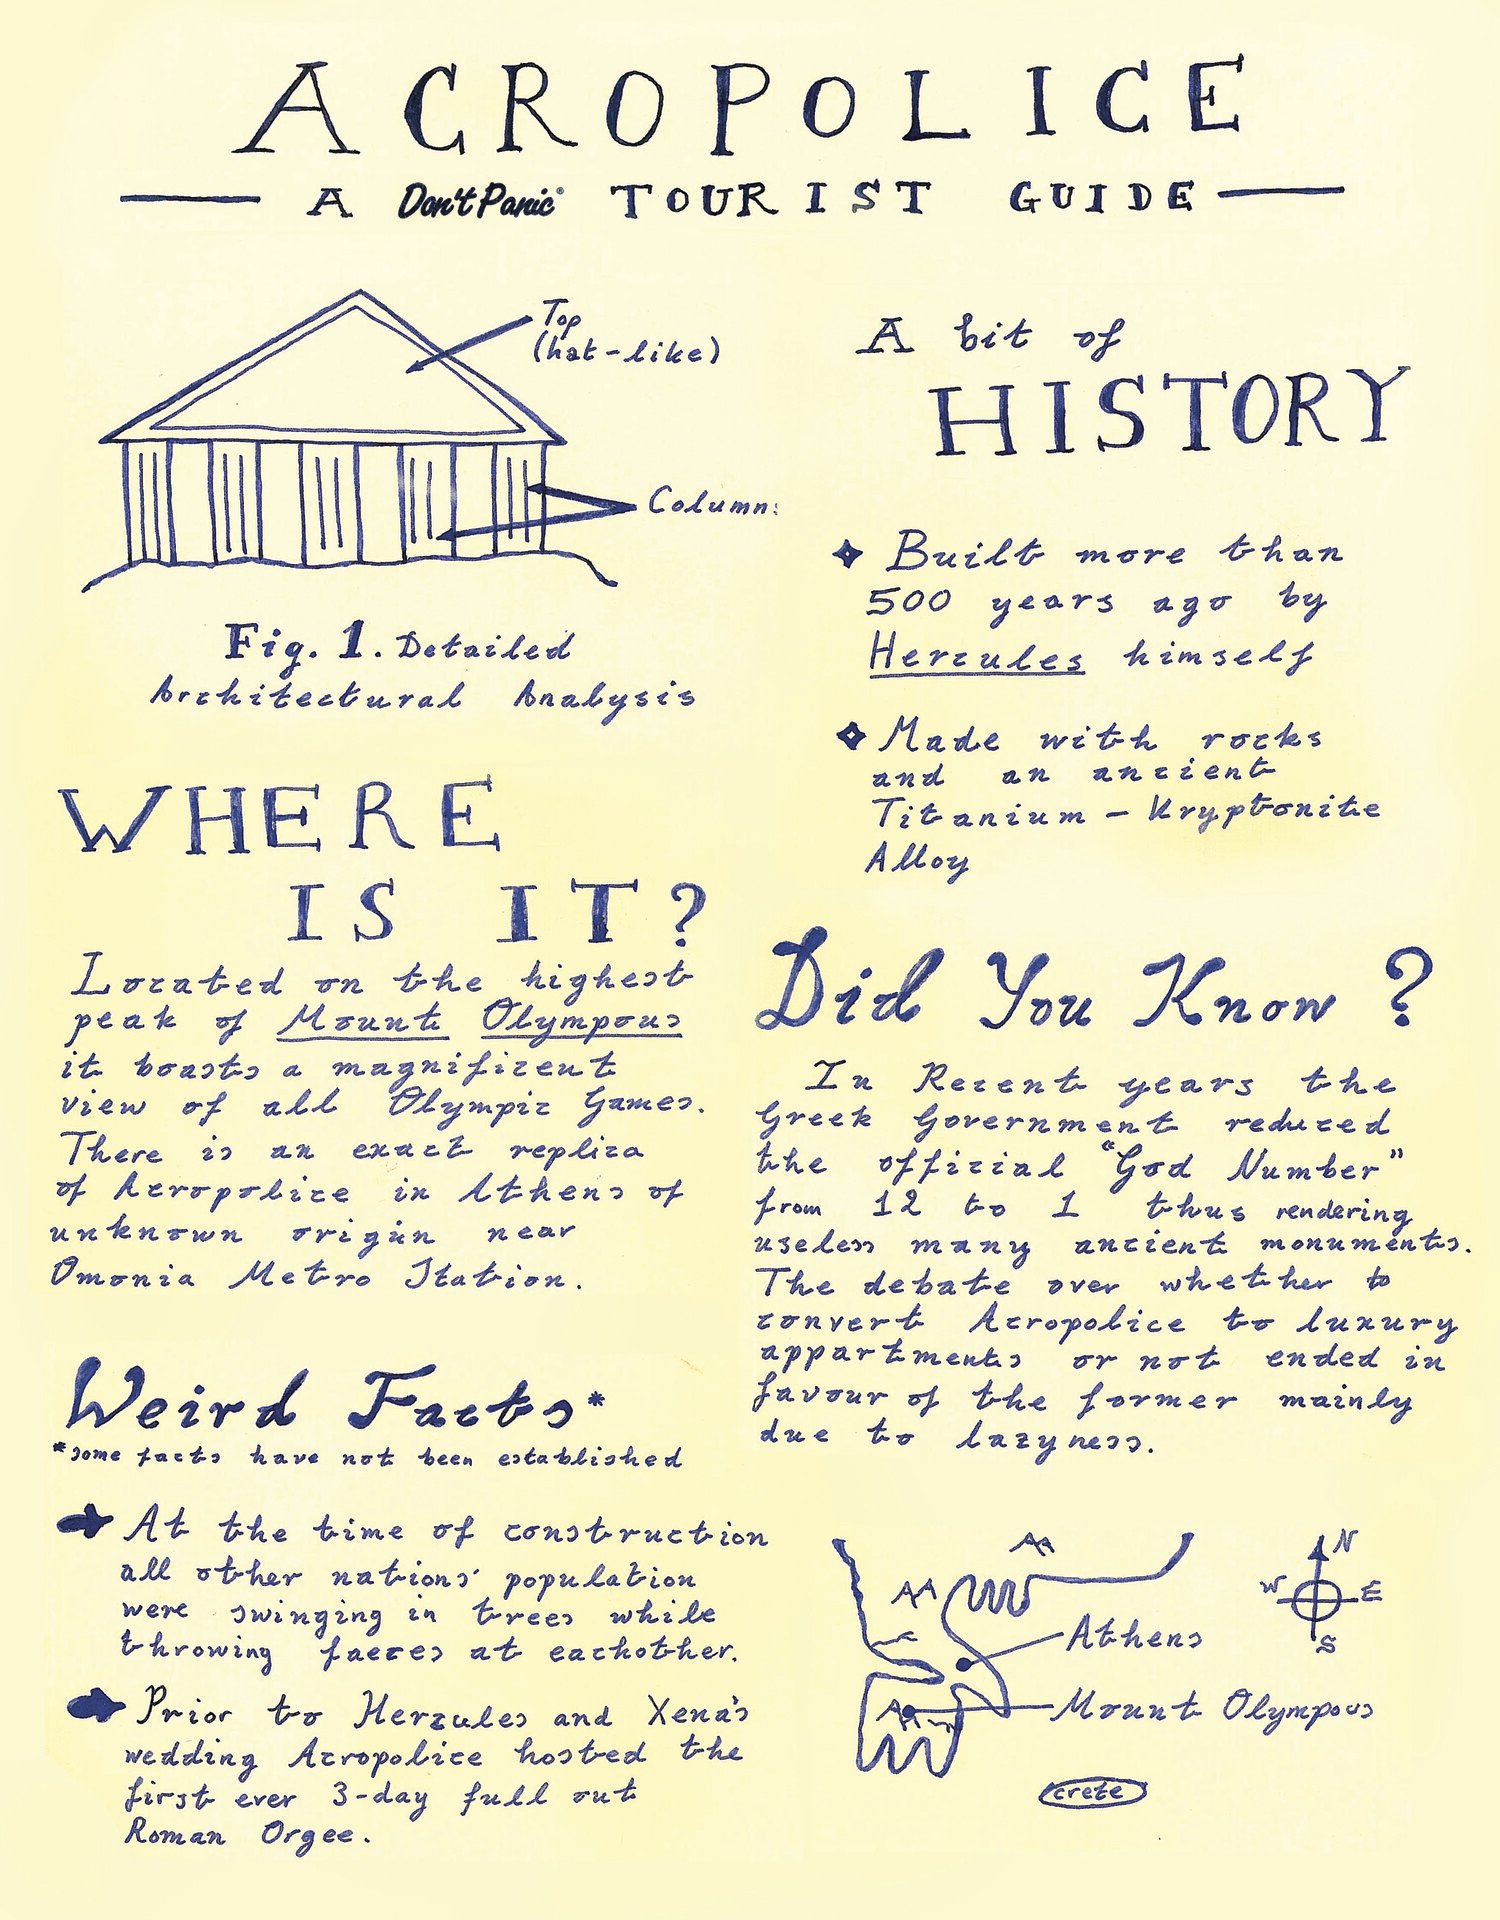 ACROPOLICE
A Don't Panic® TOURIST GUIDE
Top
(hat-like)
Columns
Fig. 1. Detailed
Architectural Analysis
A bit of
HISTORY
Built more than
500 years ago by
Hercules himself
Made with rocks
and an ancient
Titanium - Kryptonite
Alloy
WHERE
IS IT?
Located on the highest
peak of Mount Olympous
it boasts a magnificent
view of all Olympic Games.
There is an exact replica
of Acropolice in Athens of
unknown origin near
Omonia Metro Station.
Did You Know ?
In Recent years the
Greek Government reduced
the official "God Number"
from 12 to 1 thus rendering
useless many ancient monuments.
The debate over whether to
convert Acropolice to luxury
appartments or not ended in
favour of the former mainly
due to lazyness.
Weird Facts*
*some facts have not been established
At the time of construction
all other nations' population
were swinging in trees while
throwing faeces at eachother.
Prior to Hercules and Xena's
wedding Acropolice hosted the
first ever 3-day full out
Roman Orgee.
N
W E
S
Athens
Mount Olympous
crete